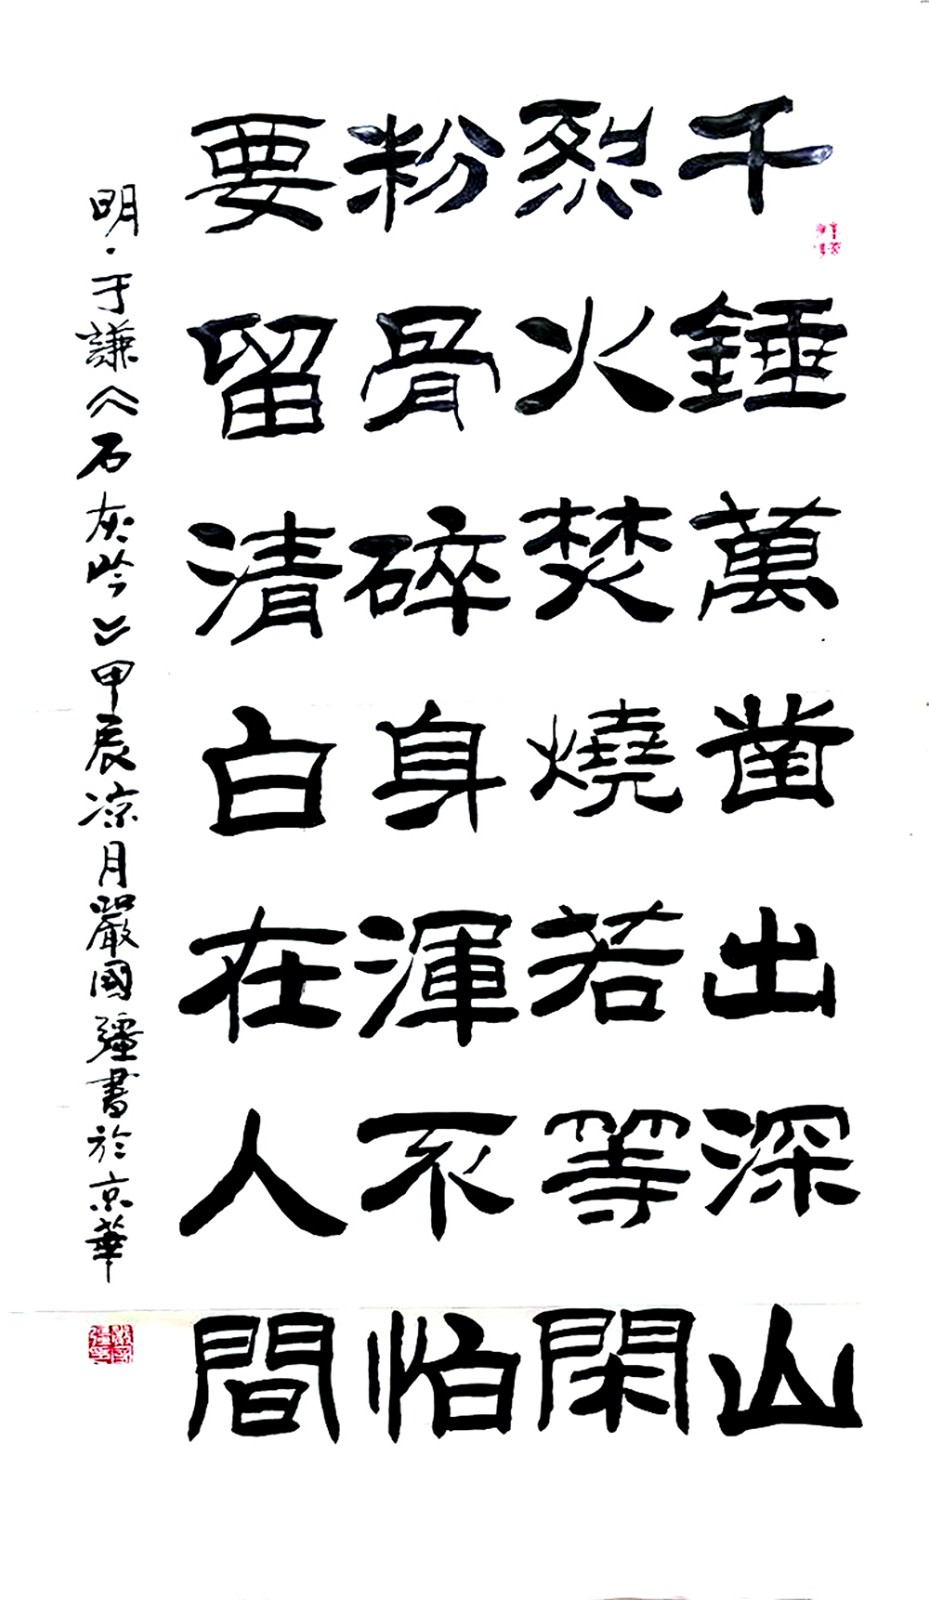 千錘萬凿出深山
烈火焚燒若等閑
粉骨碎身渾不怕
要留清白在人間
明·于謙《石灰吟》甲辰凉月嚴國疆書於京華